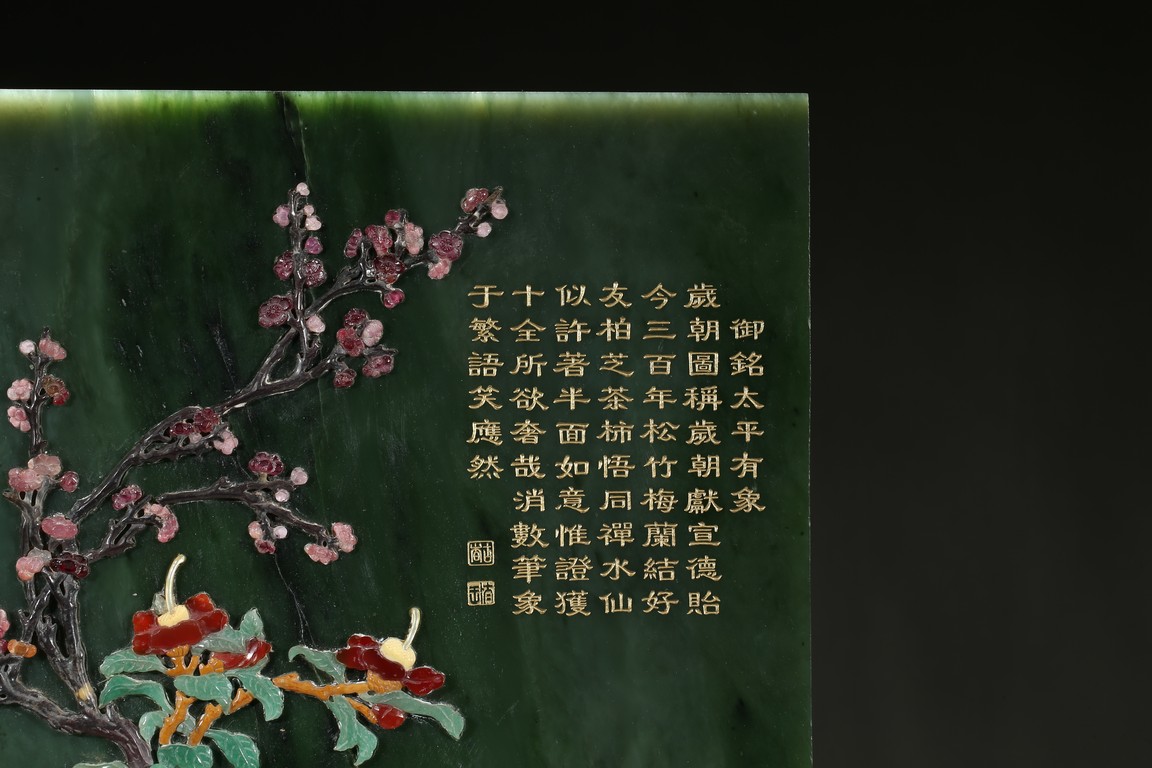 御銘太平有象
歲朝圖稱歲朝獻宣德貽
今三百年松竹梅蘭結好
友柏芝茶柿悟同禪水仙
似許著半面如意惟證獲
十全所欲奢哉消數筆象
于繁語笑應然